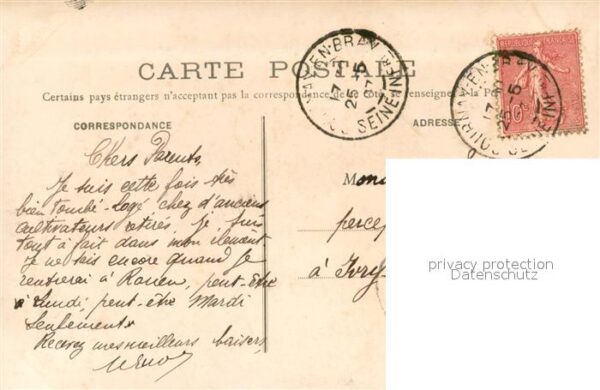 CARTE POSTALE
Certains pays étrangers n'acceptent pas la correspondance de ce côté, se renseigner à la P
CORRESPONDANCE
ADRESSE
RÉPUBLIQUE FRANÇAISE
10
17
25-5
07
SEINE INF
17
25-5
Chers Parents,
Je suis cette fois très
bien tombé - Logé chez d'anciens
cultivateurs retirés, je suis
tout à fait dans mon élément
Je ne sais encore quand je
rentrerai à Rouen, peut-être
Lundi, peut-être Mardi
seulement
Recevez mes meilleurs baisers,
M
percep
à Ivry
privacy protection
Datenschutz